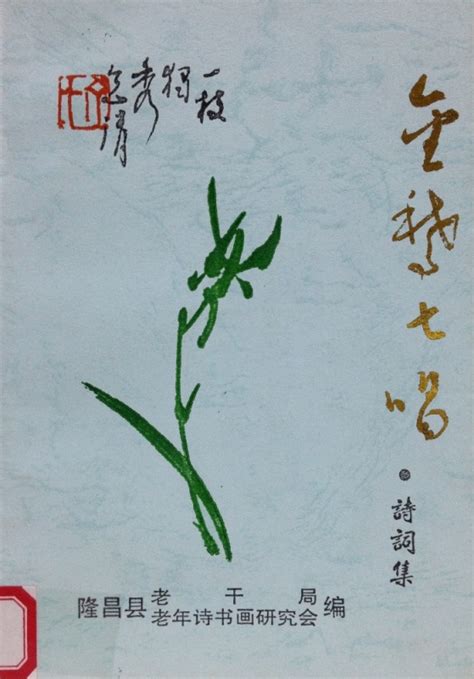 一枝
独
秀
金鹅七唱
詩詞集
隆昌县 老干局
老年诗书画研究会 编